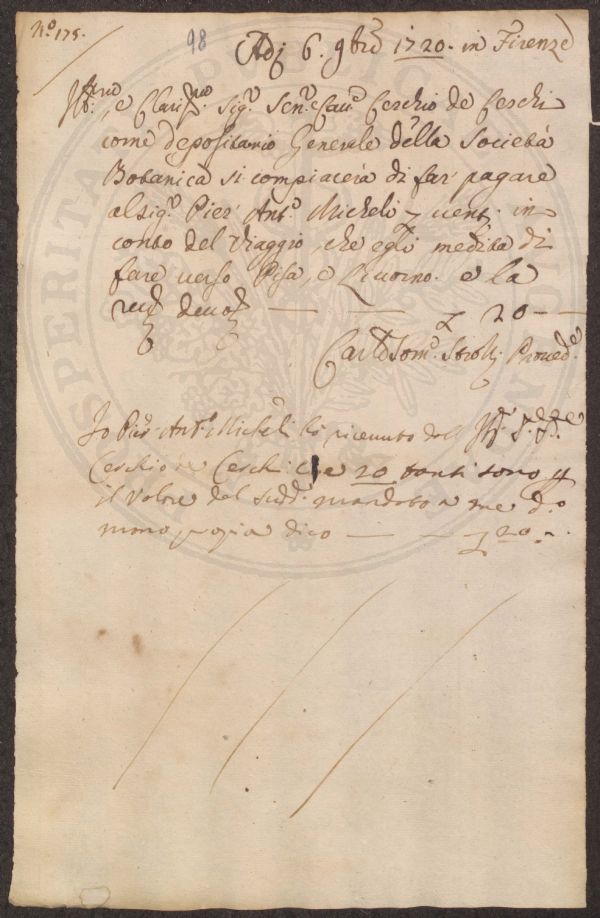 N.º 175.
98
Adj 6. 9bre 1720. in Firenze
Ill.mo, e Clariss.mo Sig.r Sen.re Cav.re Cerchio de Cerchi
come depositario Generale della Società
Botanica si compiacerà di far pagare
al Sig.r Pier Ant.º Micheli venti in
conto del Viaggio, che egli medita di
fare verso Pisa, e Livorno. e la
20
Carlo Tom.º Strozzi Proved.e
Io Pier Ant.º Micheli ho ricevuto dall Ill.
Cerchio de Cerchi lire 20 tanti sono p
il valore del sudd.º mandato a me d.º
mano propia dico 20
PROSPERITATI PUBLICAE